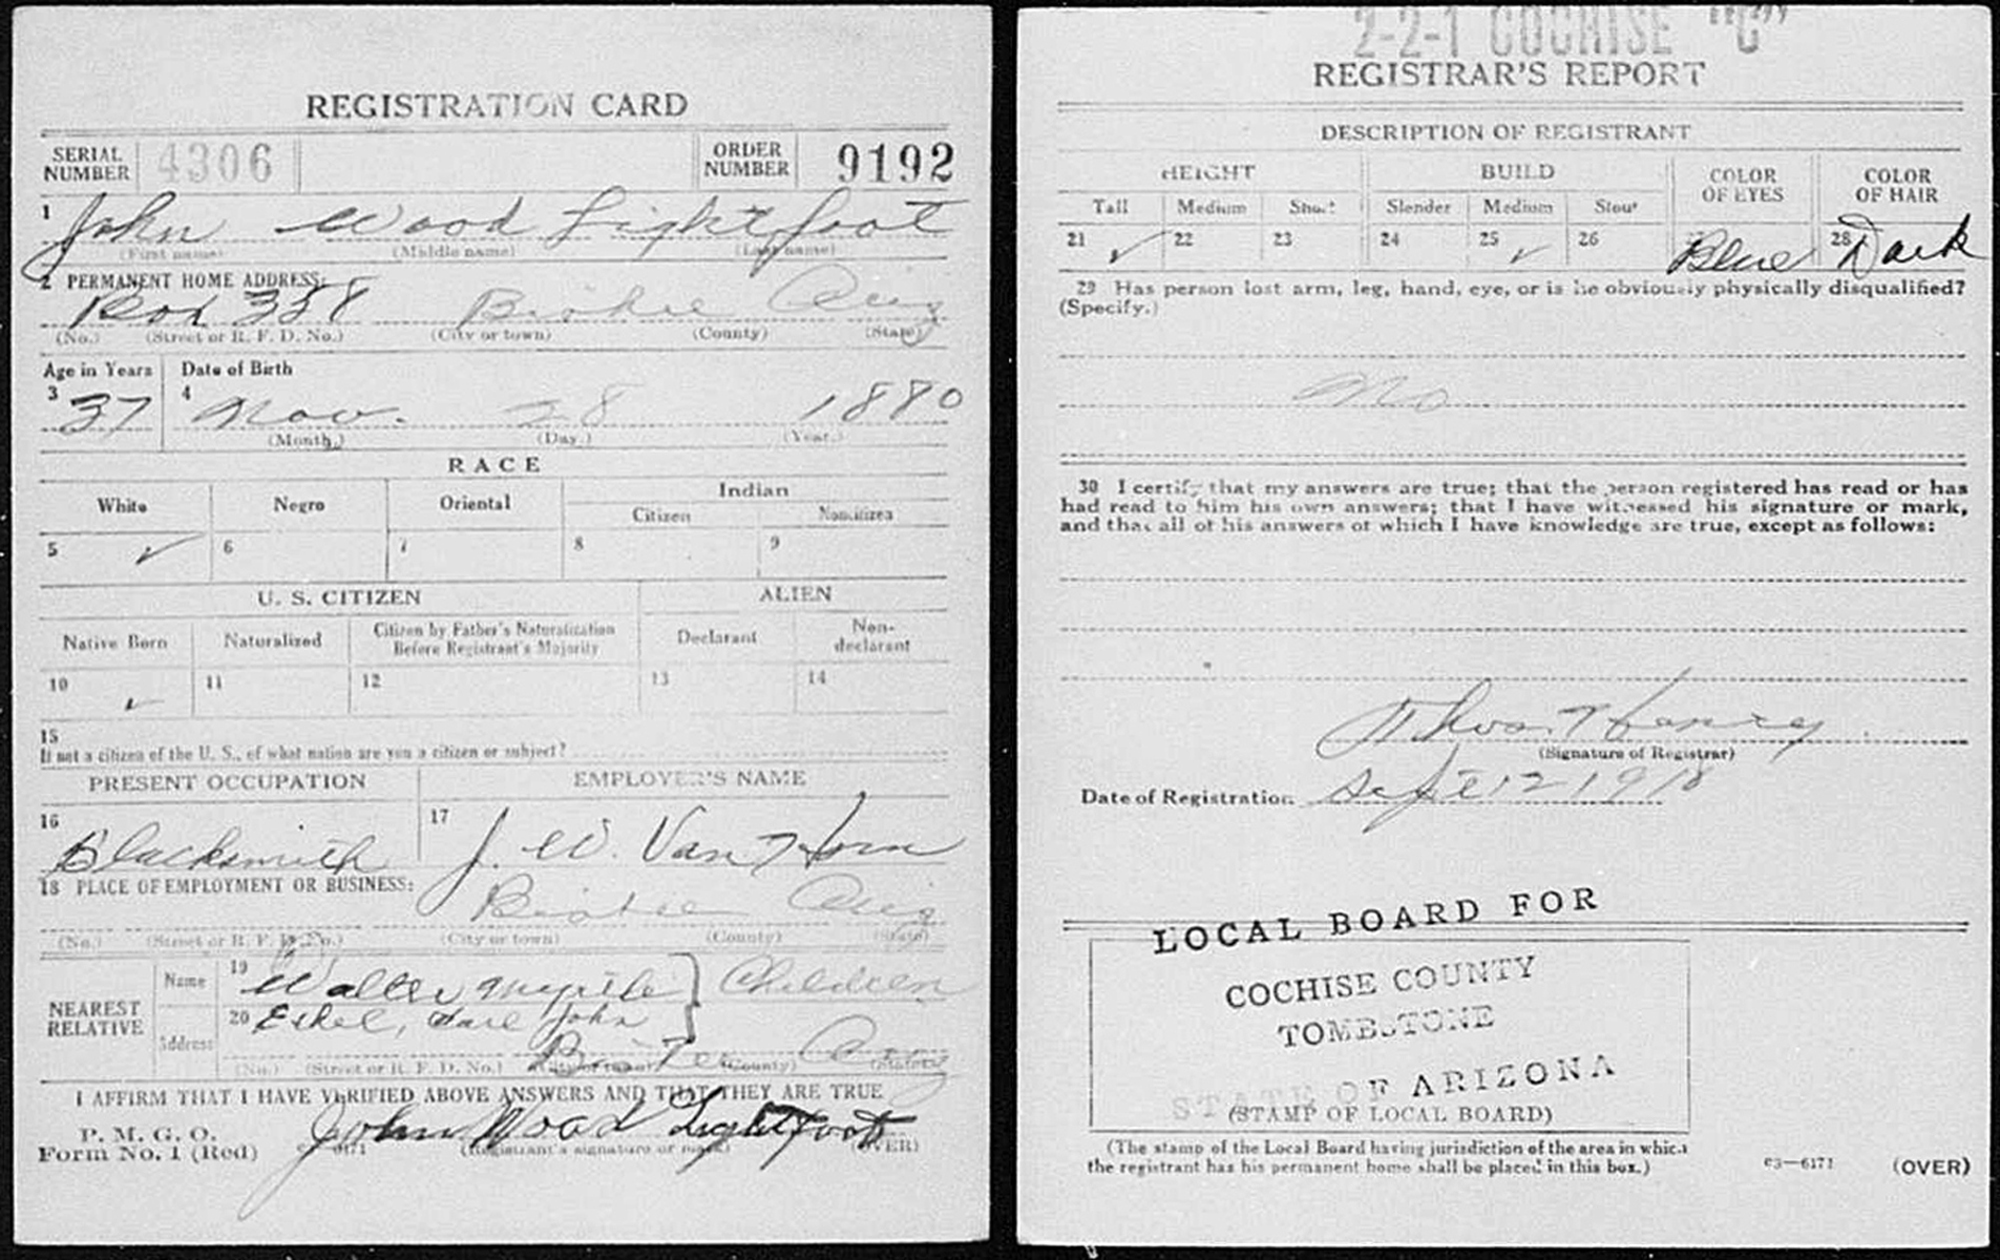 REGISTRATION CARD
SERIAL NUMBER 4306 ORDER NUMBER 9192
1 John Wood Lightfoot
(First name) (Middle name) (Last name)
2 PERMANENT HOME ADDRESS:
Box 358 Bisbee Ariz
(No.) (Street or R. F. D. No.) (City or town) (County) (State)
Age in Years Date of Birth
3 37 4 Nov. 28 1880
(Month.) (Day.) (Year.)
RACE
White Negro Oriental Indian
Citizen Noncitizen
5 ✓ 6 7 8 9
U. S. CITIZEN ALIEN
Native Born Naturalized Citizen by Father's Naturalization Before Registrant's Majority Declarant Non-declarant
10 ✓ 11 12 13 14
15
If not a citizen of the U. S., of what nation are you a citizen or subject?
PRESENT OCCUPATION EMPLOYER'S NAME
16 Blacksmith 17 J. W. Van Horn
18 PLACE OF EMPLOYMENT OR BUSINESS:
Bisbee Ariz
(No.) (Street or R. F. D. No.) (City or town) (County) (State)
NEAREST RELATIVE Name 19 Walter Myrtle } Children
Address 20 Ethel, Earl John
Bisbee Ariz
(No.) (Street or R. F. D. No.) (City or town) (County) (State)
I AFFIRM THAT I HAVE VERIFIED ABOVE ANSWERS AND THAT THEY ARE TRUE
P. M. G. O.
Form No. 1 (Red) John Wood Lightfoot
(Registrant's signature or mark) (OVER)
2-2-1 COCHISE "C"
REGISTRAR'S REPORT
DESCRIPTION OF REGISTRANT
HEIGHT BUILD COLOR OF EYES COLOR OF HAIR
Tall Medium Short Slender Medium Stout
21 ✓ 22 23 24 25 ✓ 26 Blue 28 Dark
29 Has person lost arm, leg, hand, eye, or is he obviously physically disqualified?
(Specify.)
No
30 I certify that my answers are true; that the person registered has read or has
had read to him his own answers; that I have witnessed his signature or mark,
and that all of his answers of which I have knowledge are true, except as follows:
Thos Henry
(Signature of Registrar)
Date of Registration Sept 12 1918
LOCAL BOARD FOR
COCHISE COUNTY
TOMBSTONE
STATE OF ARIZONA
(STAMP OF LOCAL BOARD)
(The stamp of the Local Board having jurisdiction of the area in which
the registrant has his permanent home shall be placed in this box.)
03—6171 (OVER)